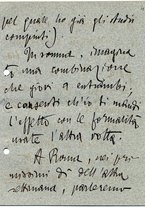 pel quale ho già gli studi
compiuti)
In somma, immagina
una combinazione
che giovi a entrambi;
e consenti ch'io ti mandi
l'effetto con le formalità
usate l'altra volta.
A Roma, nei primi
dell'altra
settimana, parleremo